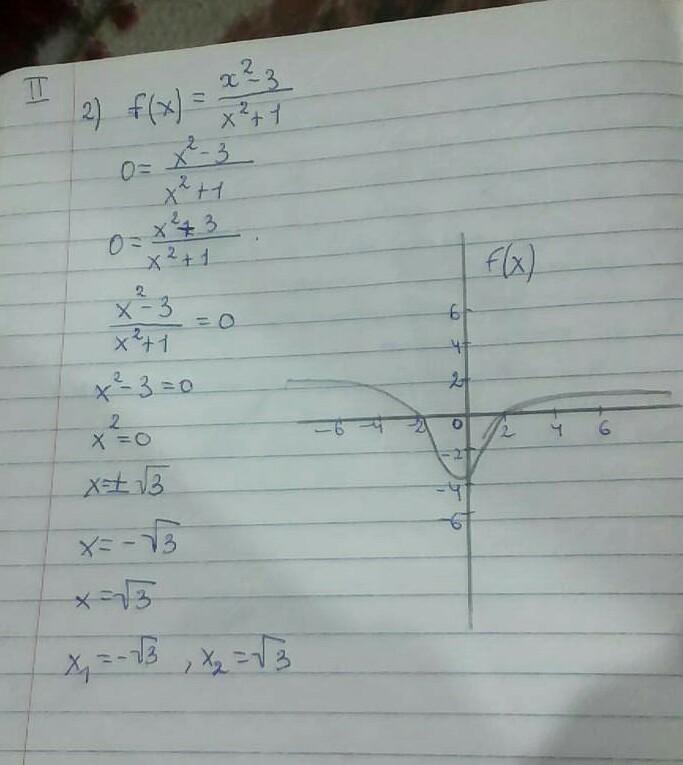 II
2) f(x) = x²-3 / x²+1
0 = x²-3 / x²+1
0 = x²-3 / x²+1 .
x²-3 / x²+1 = 0
x²-3=0
x²=0
x=±√3
x=-√3
x=√3
x₁=-√3 , x₂=√3
f(x)
6
4
2
-6 -4 -2 0 2 4 6
-2
-4
-6